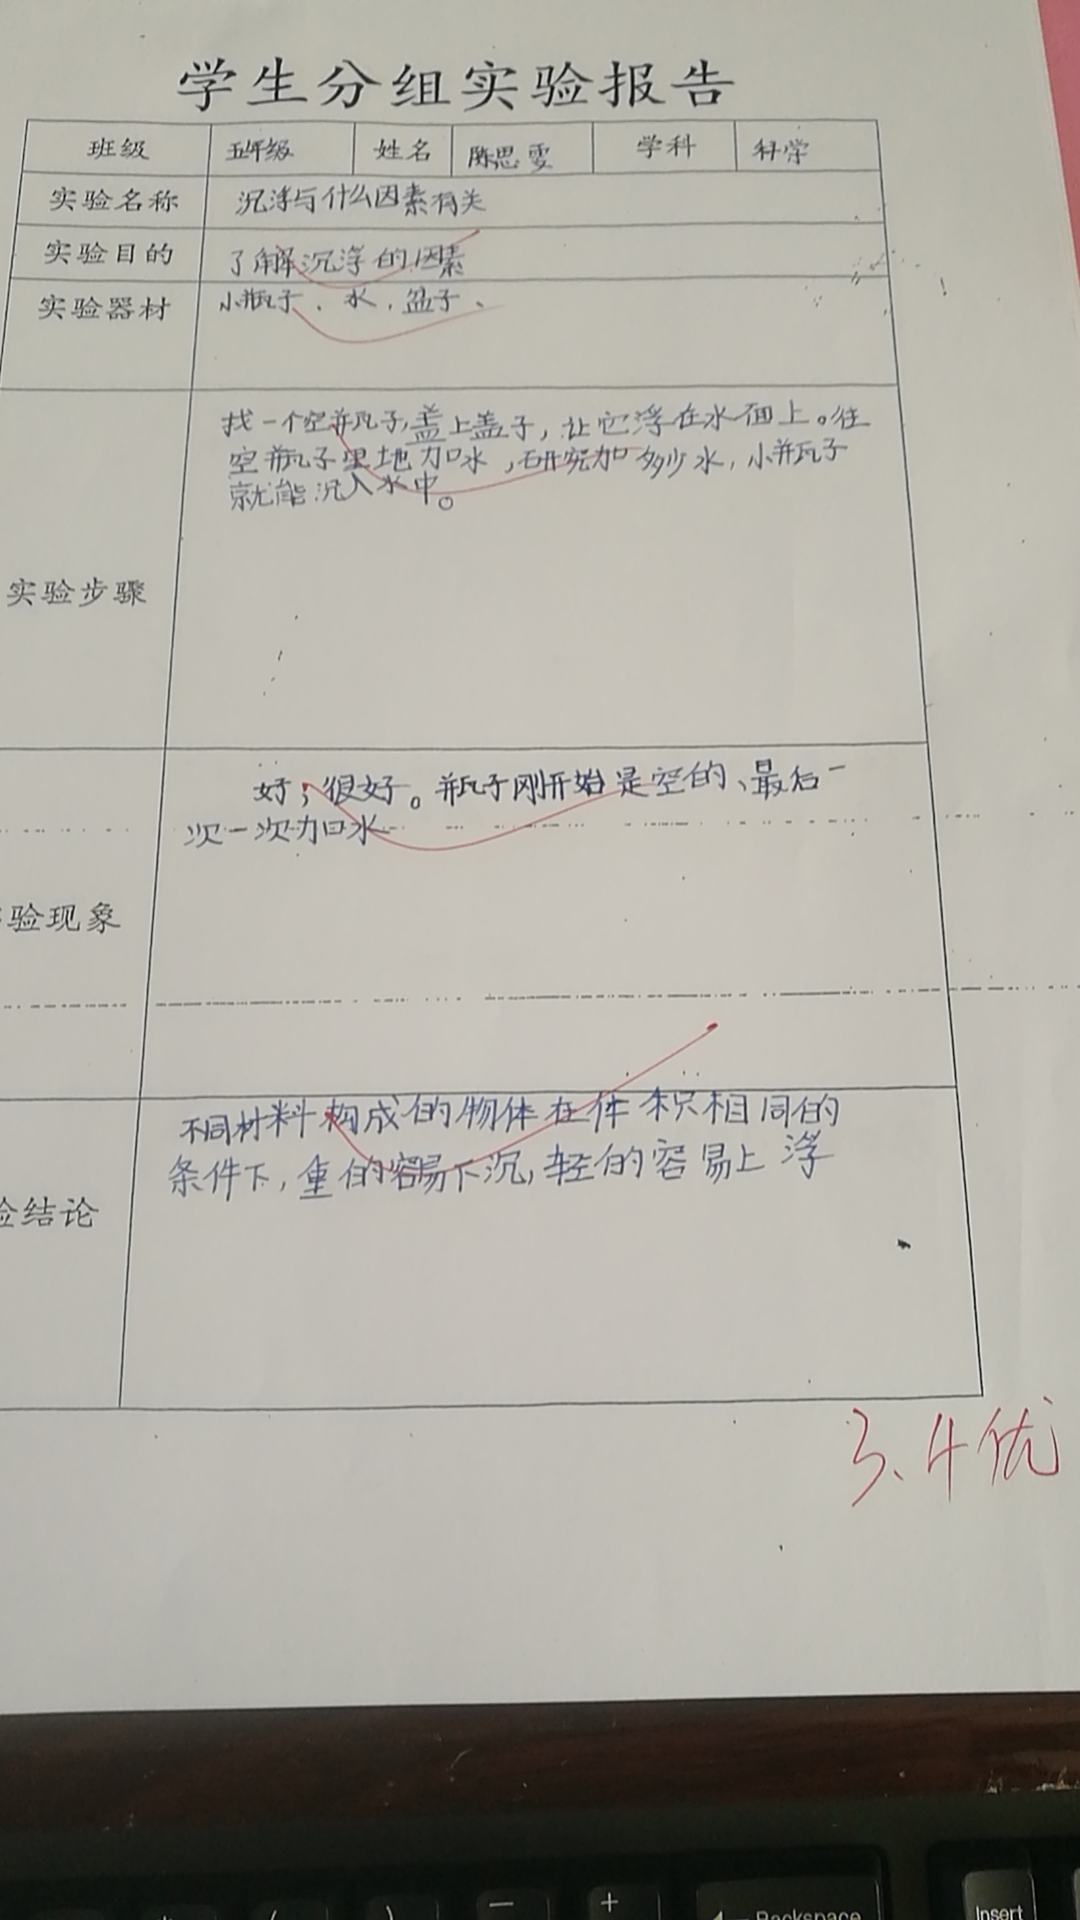 学生分组实验报告
班级 五年级 姓名 陈思雯 学科 科学
实验名称 沉浮与什么因素有关
实验目的 了解沉浮的因素
实验器材 小瓶子、水、盆子、
找一个空瓶子,盖上盖子,让它浮在水面上。往
空瓶子里地加水,研究加多少水,小瓶子
就能沉入水中。
实验步骤
好;很好。瓶子刚开始是空的、最后一
次一次加水
验现象
不同材料构成的物体在体积相同的
条件下,重的容易下沉,轻的容易上浮
验结论
3.4优
Backspace
Insert